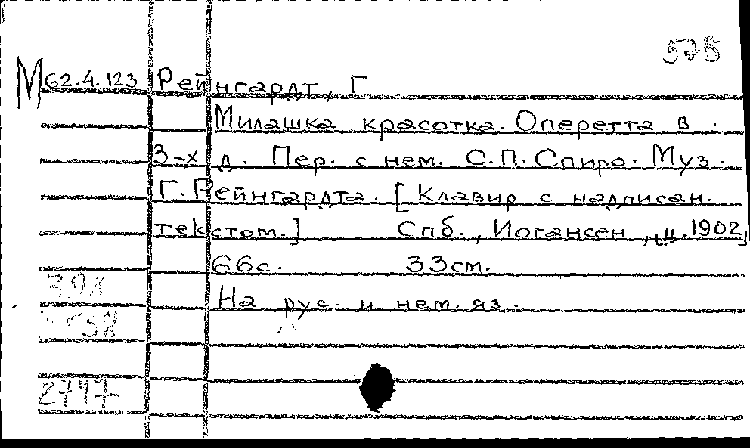 575
М 62.4.123 Рейнгардт, Г
Милашка красотка. Оперетта в
3-х д. Пер. с нем. С.П. Спиро. Муз.
Г. Рейнгардта. [Клавир с надписан.
текстом.] Спб., Иогансен, ц. 1902,
66с. 33см.
На рус. и нем. яз.
2747